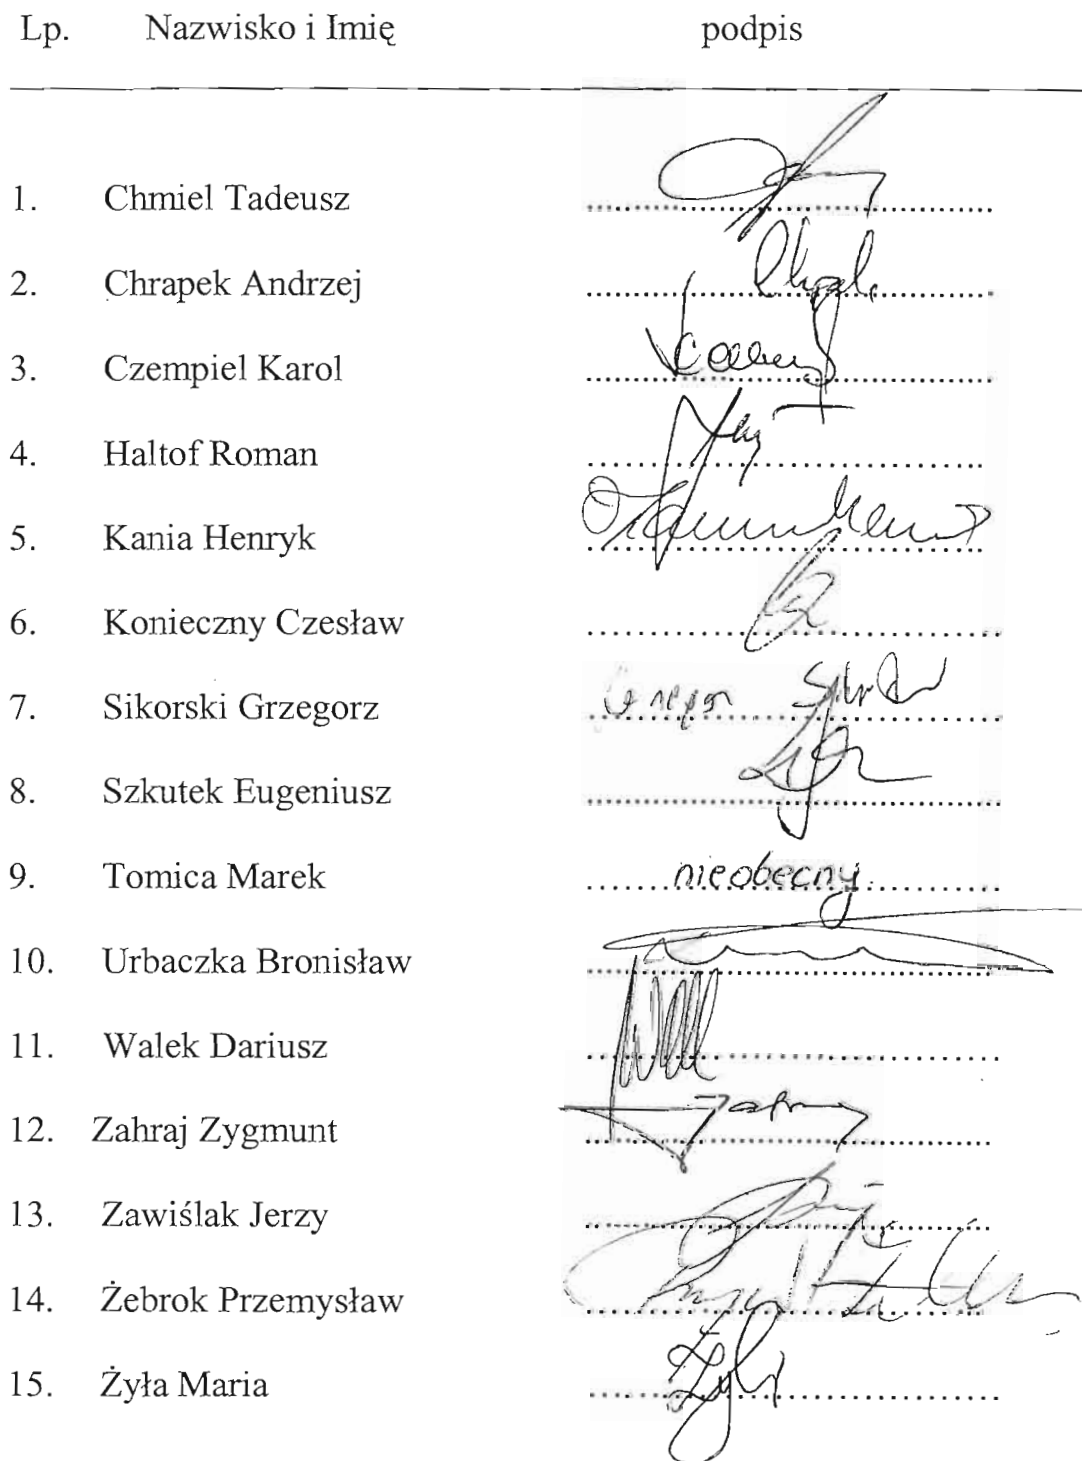 Lp. Nazwisko i Imię podpis
1. Chmiel Tadeusz
2. Chrapek Andrzej
3. Czempiel Karol
4. Haltof Roman
5. Kania Henryk
6. Konieczny Czesław
7. Sikorski Grzegorz
8. Szkutek Eugeniusz
9. Tomica Marek nieobecny
10. Urbaczka Bronisław
11. Walek Dariusz
12. Zahraj Zygmunt
13. Zawiślak Jerzy
14. Żebrok Przemysław
15. Żyła Maria